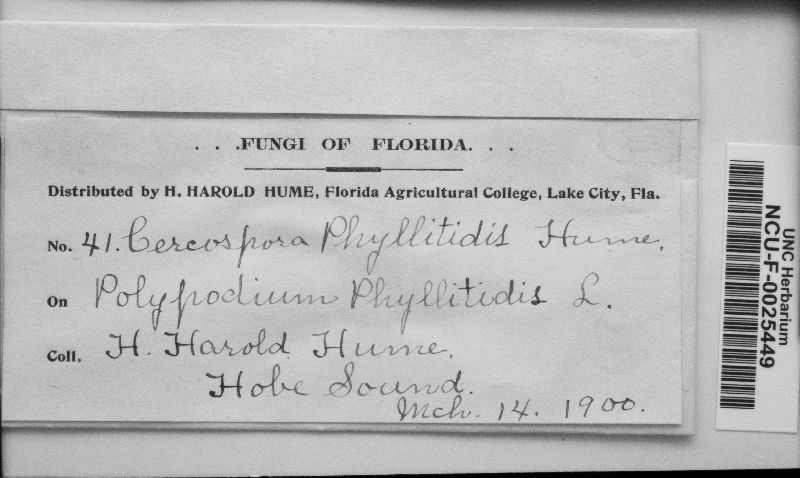 . . .FUNGI OF FLORIDA. . .
Distributed by H. HAROLD HUME, Florida Agricultural College, Lake City, Fla.
No. 41. Cercospora Phyllitidis Hume.
On Polypodium Phyllitidis L.
Coll. H. Harold Hume.
Hobe Sound.
Mch. 14. 1900.
UNC Herbarium
NCU-F-0025449